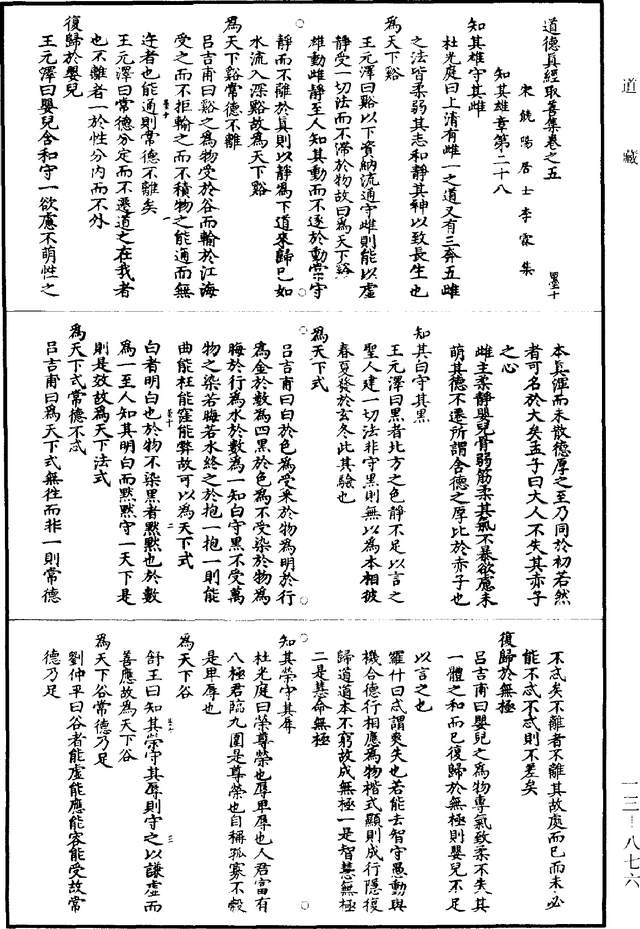 道藏
道德真經取善集卷之五
墨十
宋饒陽居士李霖集
知其雄章第二十八
知其雄守其雌
杜光庭曰上清有雌一之道又有三奔五雌
之法皆柔弱其志和靜其神以致長生也
為天下谿
王元澤曰谿以下資納流通守雌則能以虛
靜受一切法而不滯於物故曰為天下谿
雄動雌靜至人知其動而不逐於動常守
靜而不離於真則以靜為下道來歸已如
水流入深谿故為天下谿
為天下谿常德不離
呂吉甫曰谿之為物受於谷而輸於江海
受之而不拒輸之而不積物之能通而無
迕者也能通則常德不離矣
王元澤曰常德分定而不遷道之在我者
也不離者一於性分內而不外
復歸於嬰兒
王元澤曰嬰兒含和守一欲慮不萌性之
本真渾而未散德厚之至乃同於初若然
者可名於大矣孟子曰大人不失其赤子
之心
雌主柔靜嬰兒骨弱筋柔其氣不暴欲慮未
萌其德不遷所謂含德之厚比於赤子也
知其白守其黑
王元澤曰黑者北方之色靜不足以言之
聖人建一切法非守黑則無以為本相彼
春夏發於玄冬此其驗也
為天下式
呂吉甫曰白於色為受釆於物為明於行
為金於數為四黑於色為不受染於物為
晦於行為水於數為一知白守黑不受萬
物之染若晦若水終之於抱一抱一則能
曲能枉能窪能弊故可以為天下式
白者明白也於物不染黑者黙黙也於數
為一至人知其明白而黙黙守一天下是
則是效故為天下法式
為天下式常德不忒
呂吉甫曰為天下式無往而非一則常德
不忒矣不離者不離其故處而已而未必
能不忒不忒則不差矣
復歸於無極
呂吉甫曰嬰兒之為物專氣致柔不失其
一體之和而已復歸於無極則嬰兒不足
以言之也
羅什曰忒謂爽失也若能去智守愚動與
機合德行相應為物楷式顯則成行隱復
歸道道本不窮故成無極一是智慧無極
二是慧命無極
知其榮守其辱
杜光庭曰榮尊榮也辱卑辱也人君富有
八極君臨九圍是尊榮也自稱孤寡不穀
是卑辱也
為天下谷
舒王曰知其榮守其辱則守之以謙虛而
善應故為天下谷
為天下谷常德乃足
劉仲平曰谷者能虛能應能容能受故常
德乃足
一三—八七六